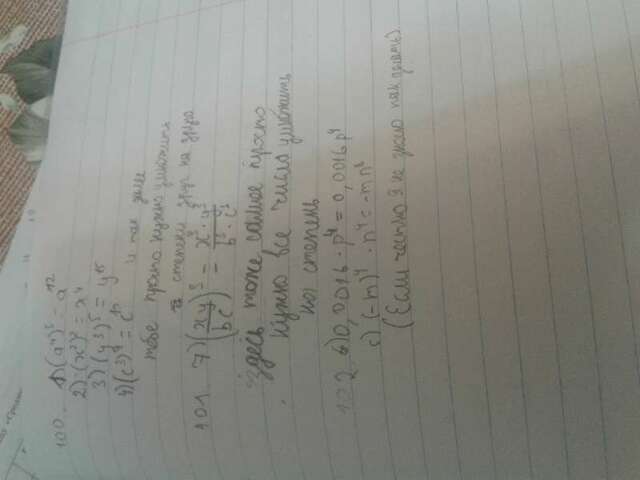 100. 1) (a⁴)³ = a¹²
2) (x²)² = x⁴
3) (y³)⁵ = y¹⁵
4) (c³)⁴ = c¹²
и так далее
тебе просто нужно умножить
степени друг на друга
101. 7) (xy/bc)³ = x³·y³/b³·c³
Здесь тоже самое просто
нужно все число умножить
на степень
102. б) 0,0016 · p⁴ = 0,0016p⁴
c) (-m)⁴ · n⁴ = -mn⁸
(Если честно я не знаю как делать)